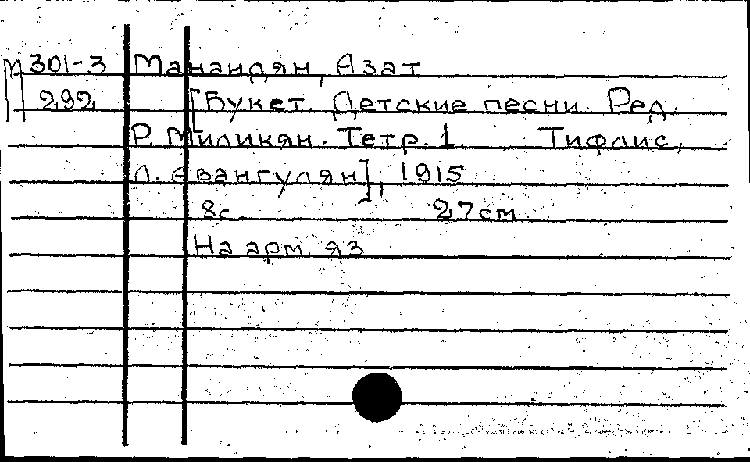 М 301-3 Манандян, Азат
292 [Букет. Детские песни. Ред.
Р. Миликян. Тетр. 1 Тифлис,
Л. Авангулян], 1915
8с. 27см.
На арм. яз